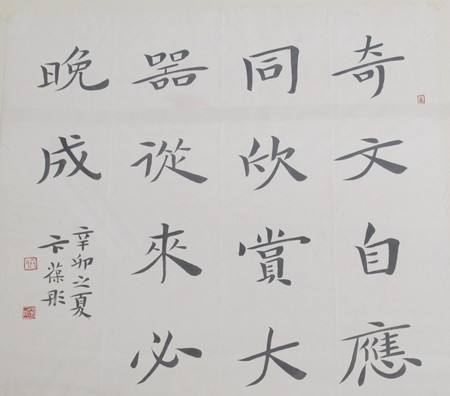 奇文自應
同欣賞大
器從來必
晚成
辛卯之夏
卞葆彤